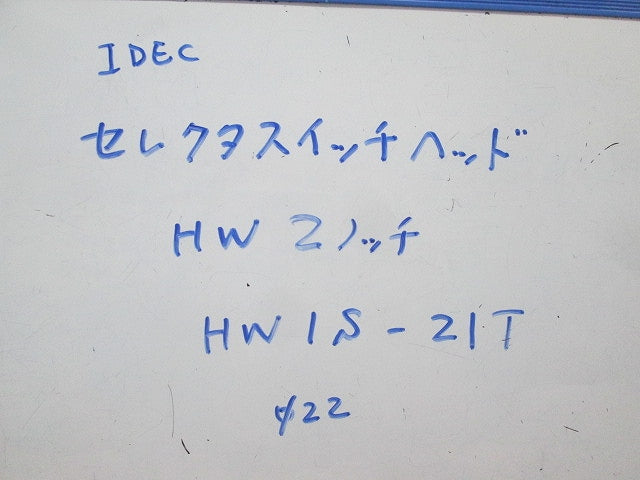 IDEC
セレクタスイッチヘッド
HW 2ノッチ
HW1S-21T
φ22